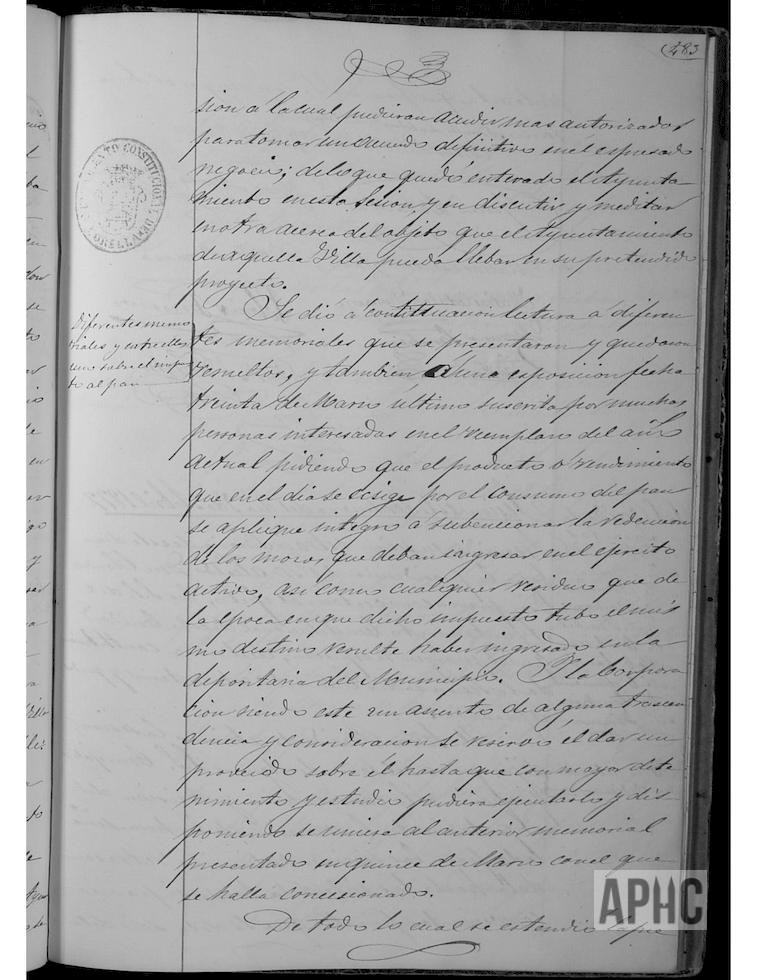 483
sion á la cual pudieran acudir mas autorizados
para tomar un acuerdo definitivo en el espresado
negocio; de lo que quedó enterado el Ayunta
miento en esta Sesion y en discutir y meditar
en otra acerca del objeto que el Ayuntamiento
de aquella Villa pueda llebar en su pretendido
proyecto.
Diferentes memo
riales y entre ellos
uno sobre el impues
to al pan
Se dió á continuacion lectura á diferen
tes memoriales que se presentaron y quedaron
resueltos, y tambien á una esposicion fecha
treinta de Marzo último suscrita por muchas
personas interesadas en el reemplazo del año
actual pidiendo que el producto ó rendimiento
que en el dia se esige por el consumo del pan
se aplique integro á subencionar la redencion
de los mozos que deban ingresar en el ejercito
activo, asi como cualquier residuo que de
la epoca en que dicho impuesto tubo el mis
mo destino resulte haber ingresado en la
depositaria del Municipio. Y la Corpora
cion siendo este un asunto de alguna trascen
dencia y consideracion se reservó el dar un
proveido sobre él hasta que con mayor dete
nimiento y estudio pudiera ejecutarlo y dis
poniendo se uniese al anterior memorial
presentado en quince de Marzo con el que
se halla concesionado.
De todo lo cual se estendió la que
AYUNTAMIENTO CONSTITUCIONAL DE
CORELLA
APHC